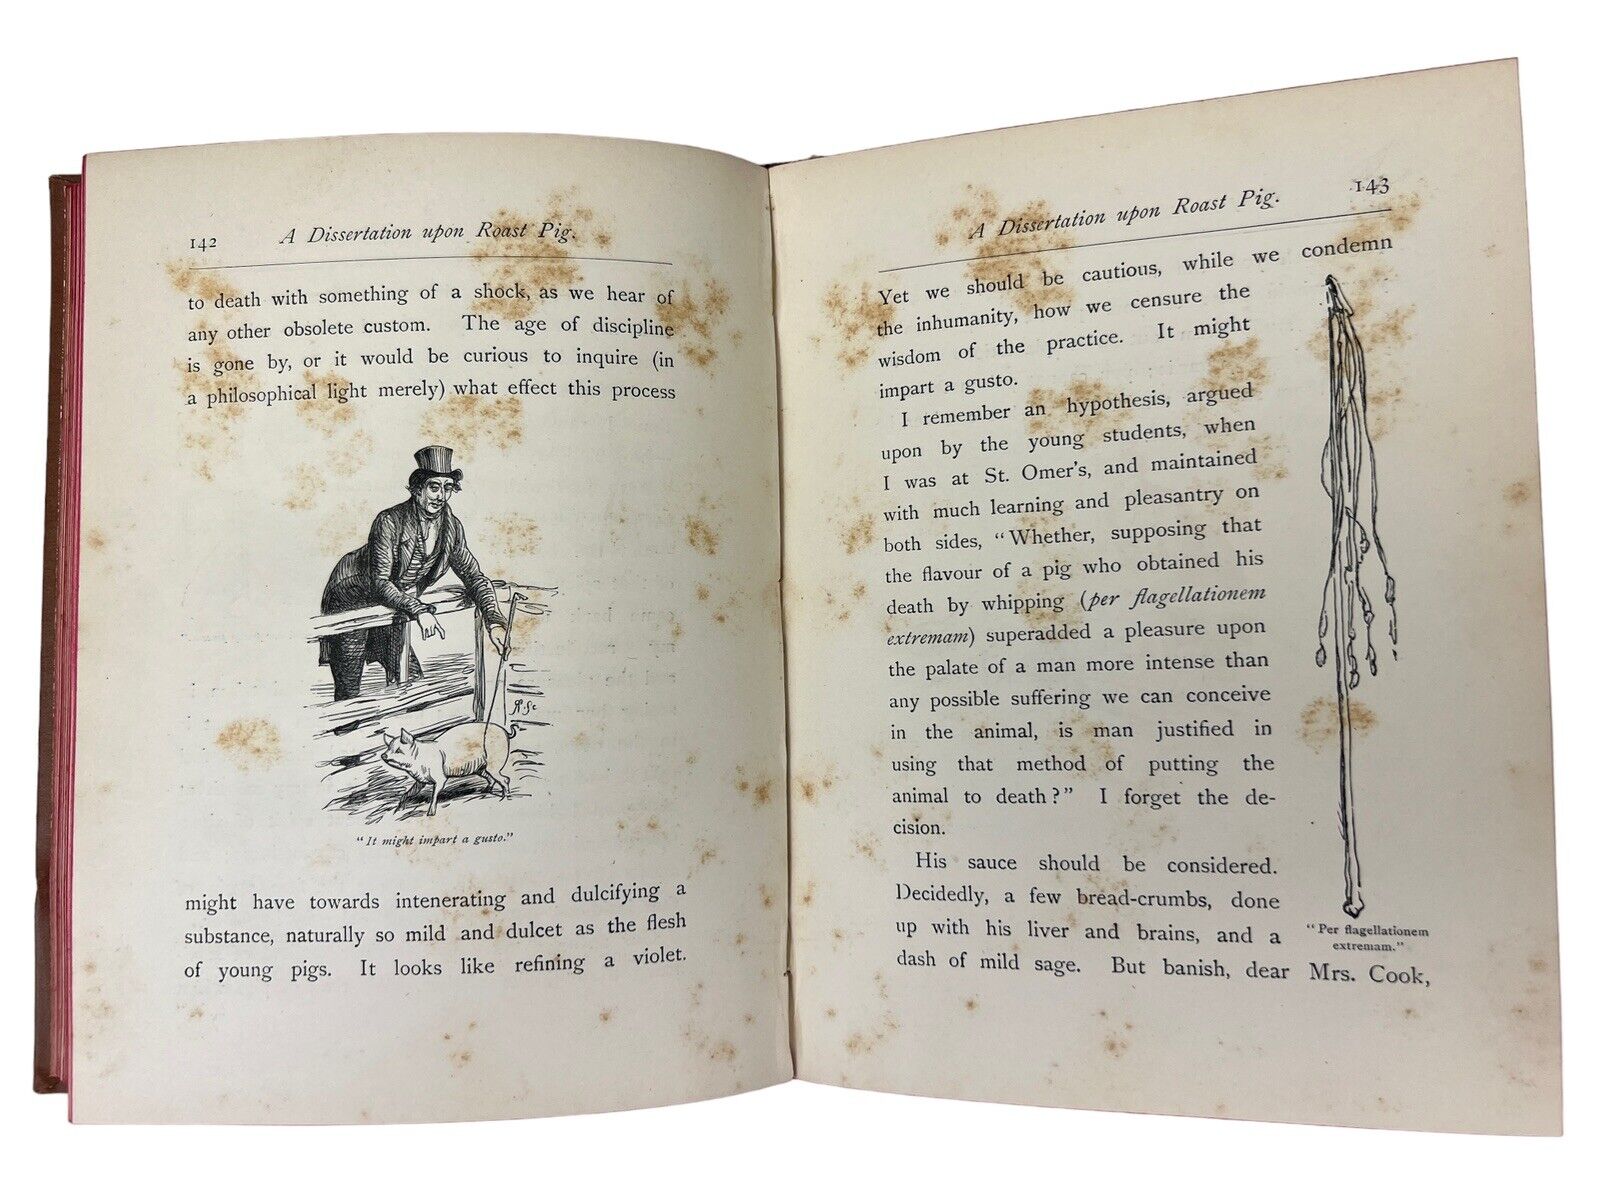 142 A Dissertation upon Roast Pig.
to death with something of a shock, as we hear of
any other obsolete custom. The age of discipline
is gone by, or it would be curious to inquire (in
a philosophical light merely) what effect this process
"It might impart a gusto."
might have towards intenerating and dulcifying a
substance, naturally so mild and dulcet as the flesh
of young pigs. It looks like refining a violet.
A Dissertation upon Roast Pig. 143
Yet we should be cautious, while we condemn
the inhumanity, how we censure the
wisdom of the practice. It might
impart a gusto.
I remember an hypothesis, argued
upon by the young students, when
I was at St. Omer's, and maintained
with much learning and pleasantry on
both sides, "Whether, supposing that
the flavour of a pig who obtained his
death by whipping (per flagellationem
extremam) superadded a pleasure upon
the palate of a man more intense than
any possible suffering we can conceive
in the animal, is man justified in
using that method of putting the
animal to death?" I forget the de-
cision.
His sauce should be considered.
Decidedly, a few bread-crumbs, done
up with his liver and brains, and a
dash of mild sage. But banish, dear Mrs. Cook,
"Per flagellationem
extremam."